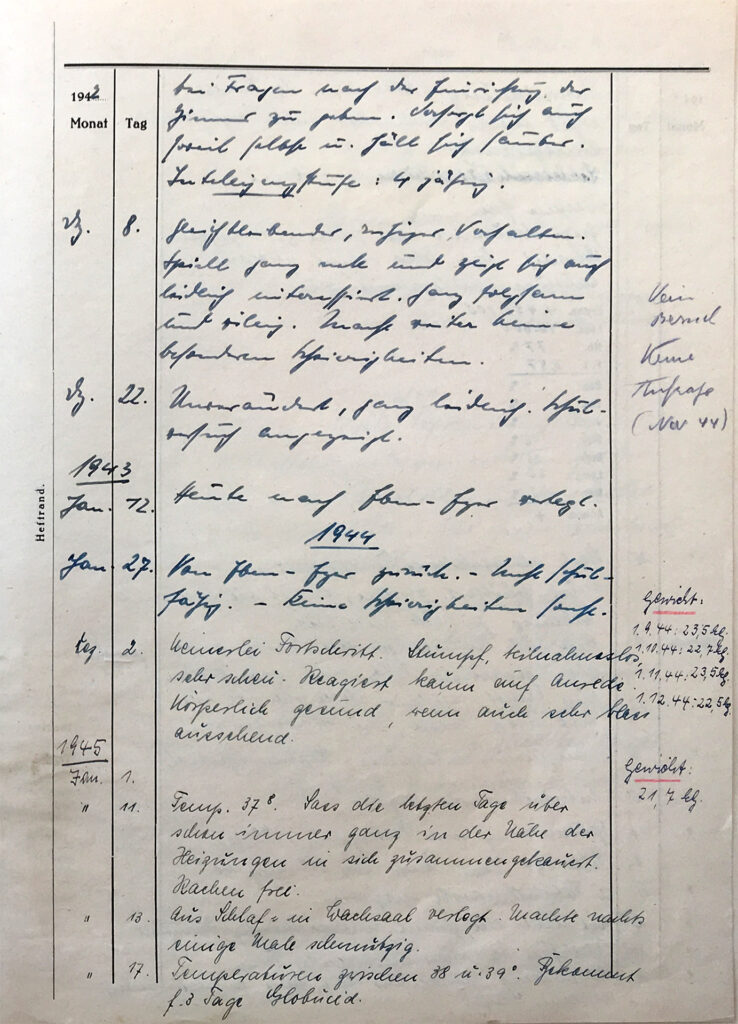 1942
Monat Tag
bei Fragen nach der Einrichtung der
Zimmer zu geben. Versorgt sich auch
soweit selbst u. hält sich sauber.
Intelligenzstufe: 4 jährig.
Dz. 8. Gleichbleibender, ruhiger Verhalten.
Spielt ganz nett und zeigt sich auch
leidlich interessiert. Ganz folgsam
und willig. Macht weiter keine
besonderen Schwierigkeiten.
Kein
Besuch
Keine
Anfrage
(Nov 44)
Dz. 22. Unverändert, ganz leidlich. Schul-
versuch angezeigt.
1943
Jan. 12. Heute nach verlegt.
1944
Jan. 27. Von zurück. - Nicht schul-
fähig. - Keine Schwierigkeiten sonst.
Gewicht:
1.9.44: 23,5 kg.
1.10.44: 22,7 kg.
1.11.44: 23,5 kg
1.12.44: 22,5 kg
Dez. 2. Keinerlei Fortschritt. Stumpf, teilnahmslos,
sehr scheu. Reagiert kaum auf Anrede.
Körperlich gesund, wenn auch sehr blass
aussehend.
1945
Jan. 1.
Gewicht:
21,7 kg.
" 11. Temp. 37⁸. Sass die letzten Tage über
schon immer ganz in der Nähe der
Heizungen in sich zusammengekauert.
Rachen frei.
" 13. Aus Schlaf- in Wachsaal verlegt. Machte nachts
einige Male schmutzig.
" 17. Temperaturen zwischen 38 u. 39°. Bekommt
f. 3 Tage Globucid.
Heftrand.